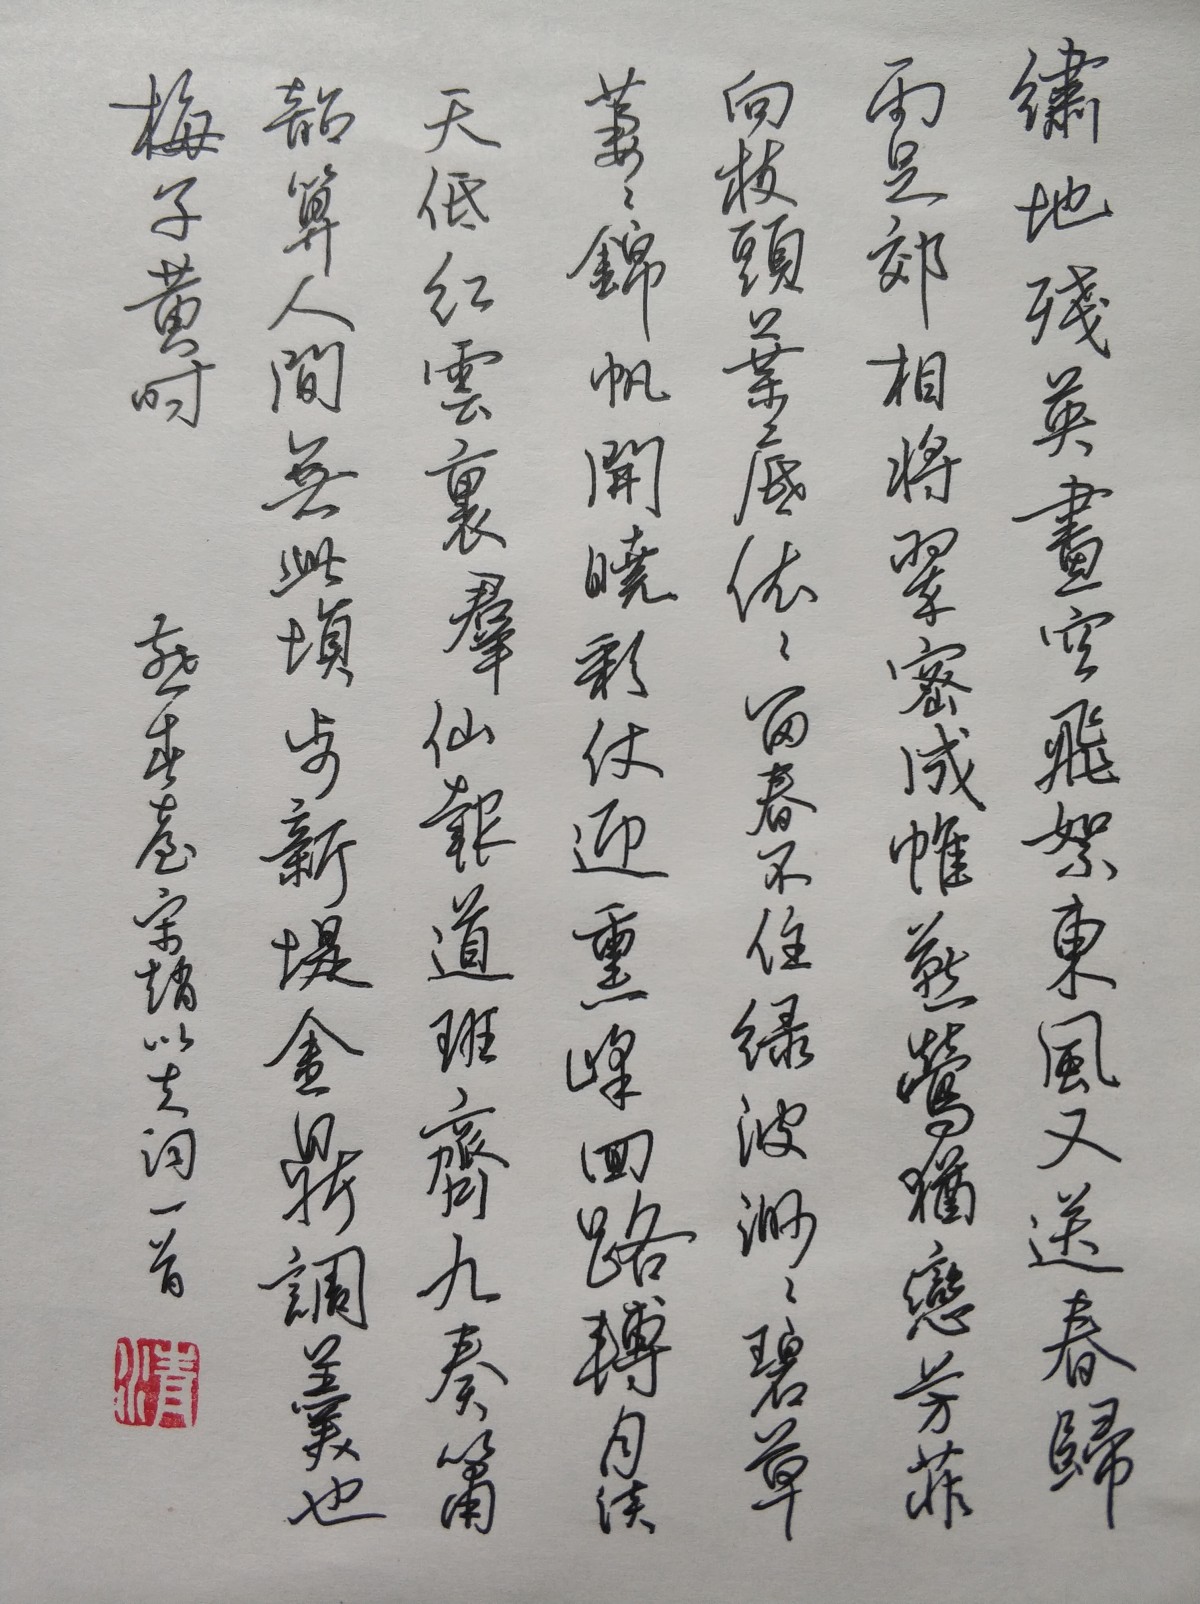 繡地殘英畫空飛絮東風又送春歸
雨足郊相將翠密成帷燕鶯猶戀芳菲
向枝頭葉底依依留春不住綠波渺渺碧草
萋萋錦帆開曉彩仗迎熏峰回路轉月淡
天低紅雲裏群仙報道班齊九奏簫
韶算人間無此塤步新堤金鼎調羹也
梅子黃时
燕春臺宋趙以夫词一首
清